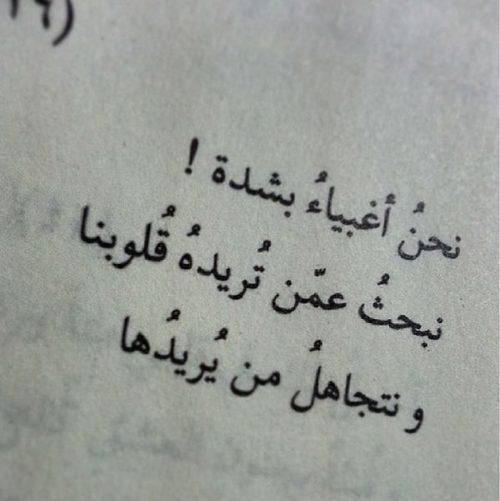 ١٦)
نحنُ أغبياءُ بشدة !
نبحثُ عمّن تُريدهُ قُلوبنا
و نتجاهلُ من يُريدُها